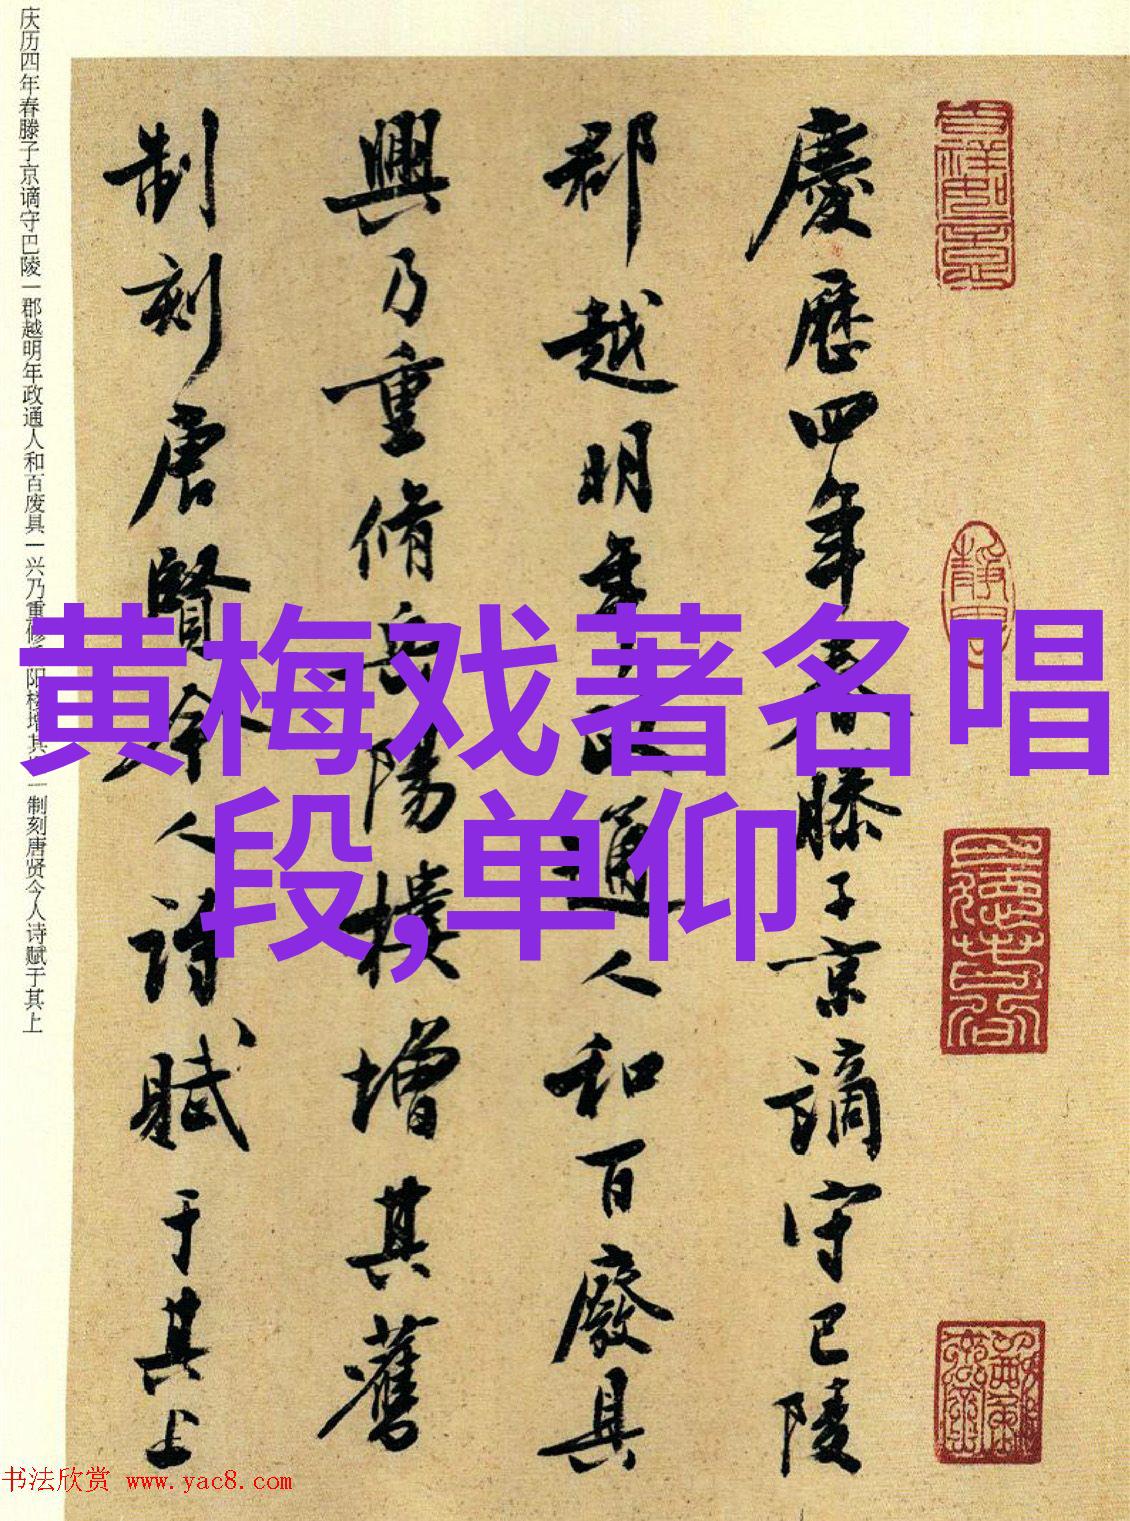 慶歷四年春滕子京謫守巴陵
郡越明年政通人和百廢具
興乃重脩岳陽樓增其舊
制刻唐賢今人詩賦于其上
庆历四年春滕子京谪守巴陵一郡越明年政通人和百废具一兴乃重修岳阳楼增其一制刻唐贤今人诗赋于其上
黄梅戏著名唱
段,单仰
书法欣赏 www.yac8.com